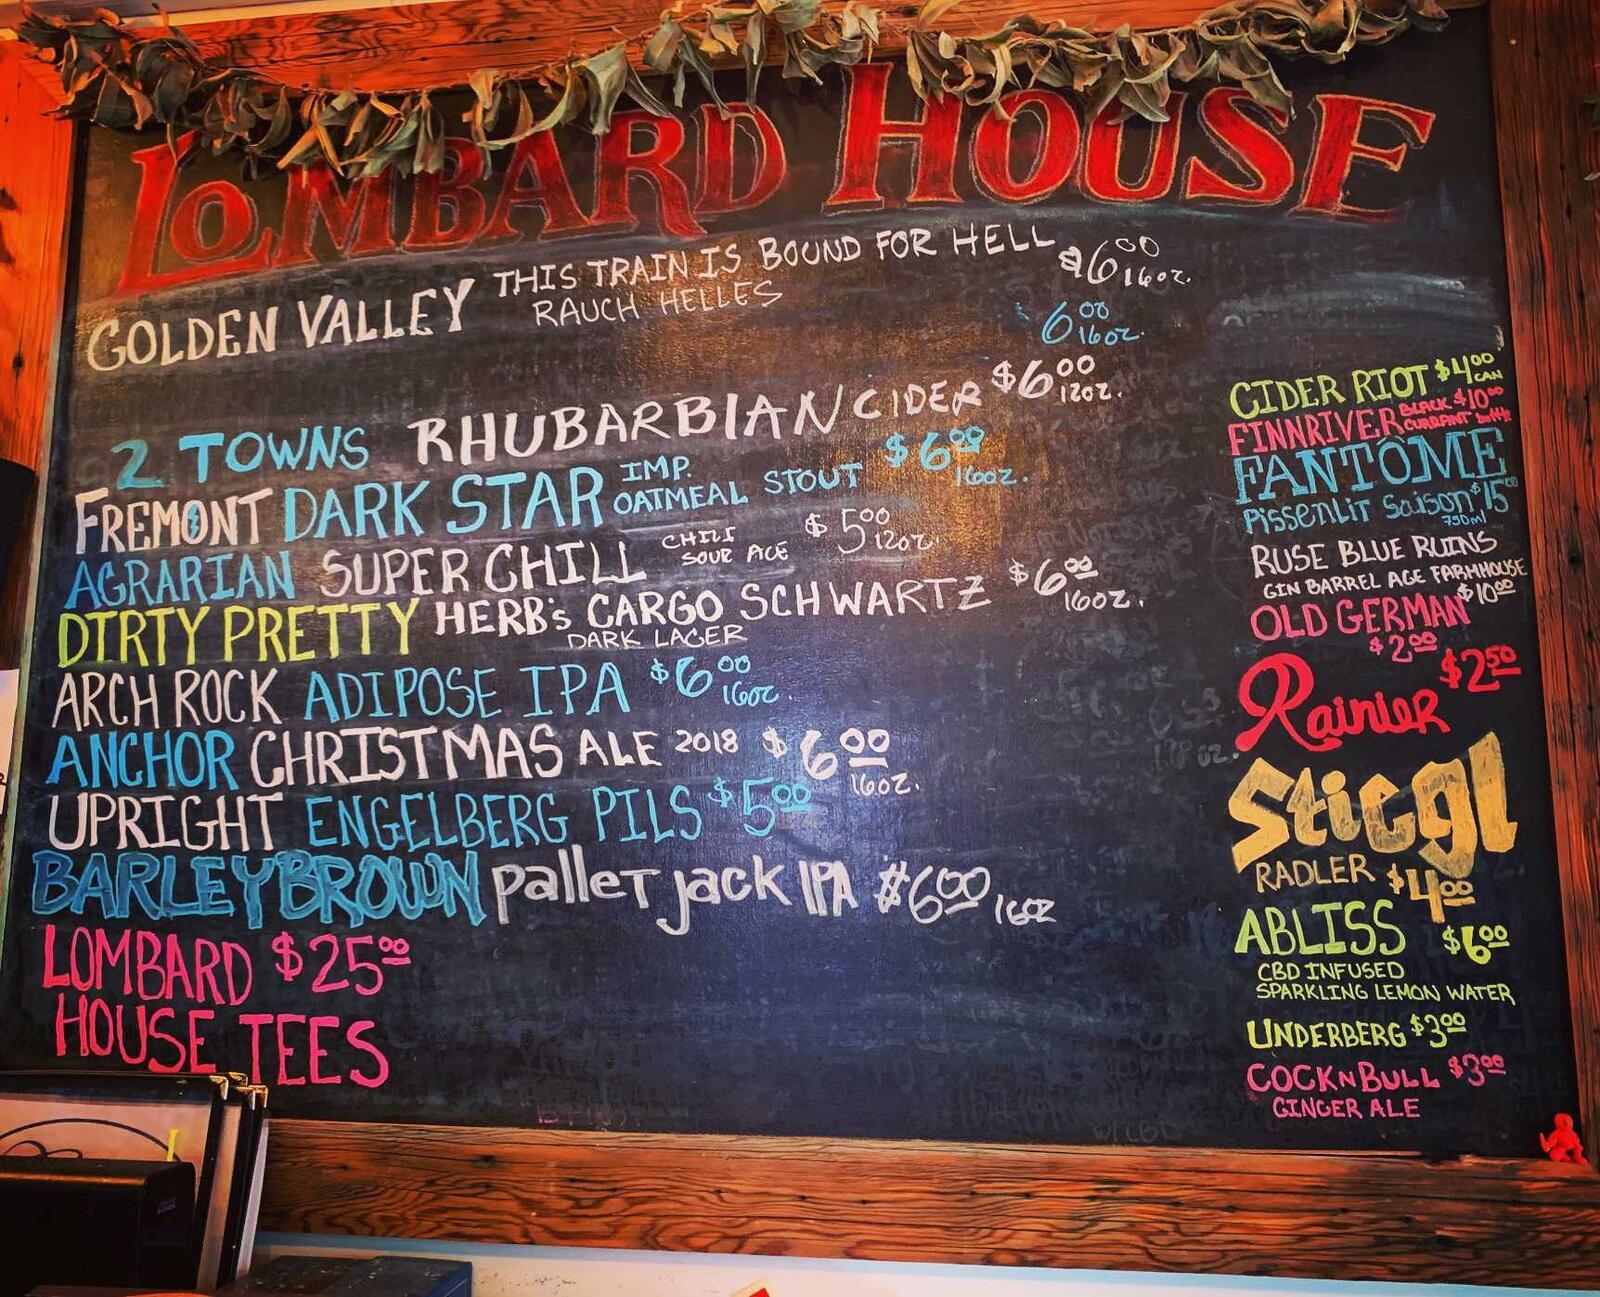 LOMBARD HOUSE
GOLDEN VALLEY THIS TRAIN IS BOUND FOR HELL $6.00 16oz.
RAUCH HELLES
6.00 16oz.
2 TOWNS RHUBARBIAN CIDER $6.00 12oz.
FREMONT DARK STAR IMP. OATMEAL STOUT $6.00 16oz.
AGRARIAN SUPER CHILL CHILI SOUR AGE $5.00 12oz.
DIRTY PRETTY HERB's CARGO SCHWARTZ $6.00 16oz.
DARK LAGER
ARCH ROCK ADIPOSE IPA $6.00 16oz.
ANCHOR CHRISTMAS ALE 2018 $6.00 16oz.
UPRIGHT ENGELBERG PILS $5.00
BARLEYBROWN pallet jack IPA $6.00 16oz
LOMBARD $25.00
HOUSE TEES
CIDER RIOT $4.00 CAN
FINNRIVER BLACK CURRANT $10.00 bottle
FANTÔME
Pissenlit Saison $15.00
750ml
RUSE BLUE RUINS
GIN BARREL AGE FARMHOUSE
$10.00
OLD GERMAN
$2.00
Rainier $2.50
Stiegl
RADLER $4.00
ABLISS $6.00
CBD INFUSED
SPARKLING LEMON WATER
UNDERBERG $3.00
COCKNBULL $3.00
GINGER ALE